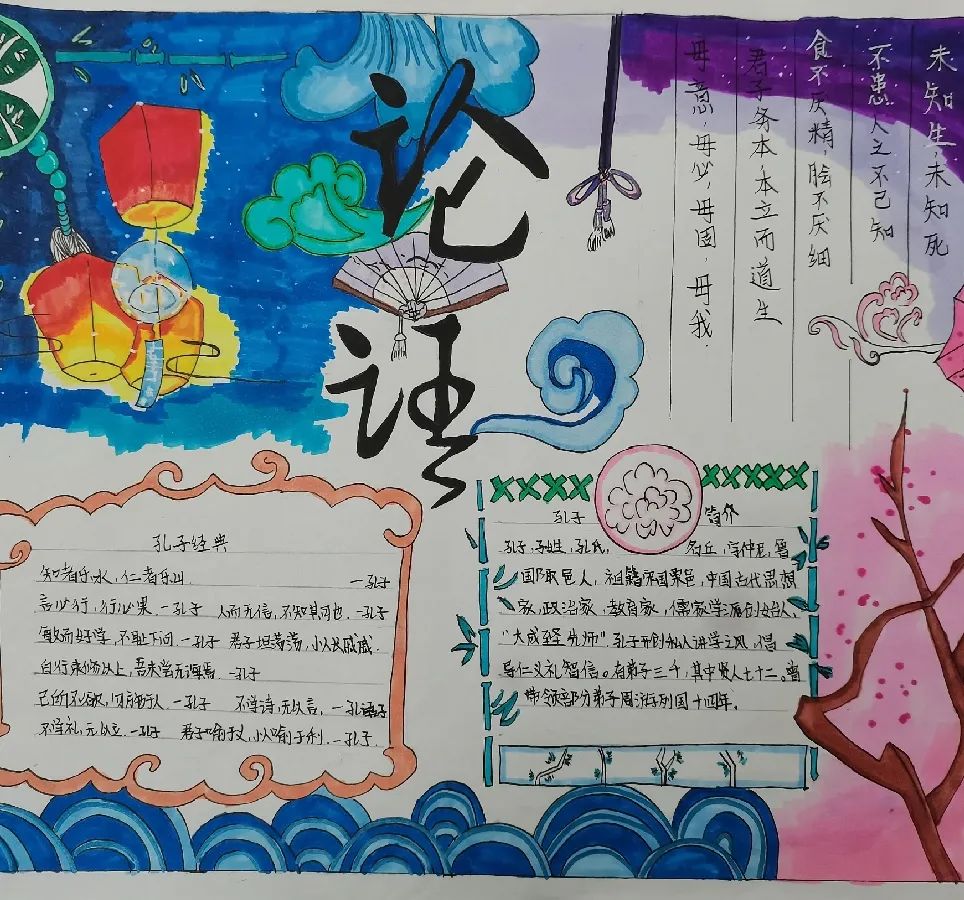 论语
未知生，未知死
不患人之不己知
食不厌精，脍不厌细
君子务本本立而道生
毋意，毋必，毋固，毋我．
孔子经典
知者乐水，仁者乐山． 一孔子
言必行，行必果．一孔子 人而无信，不知其可也．一孔子
敏而好学，不耻下问．一孔子 君子坦荡荡，小人长戚戚．
自行束脩以上，吾未尝无诲焉．一孔子
己所不欲，勿施于人．一孔子 不学诗，无以言．一孔子
不学礼，无以立．一孔子 君子喻于义，小人喻于利．一孔子．
孔子 简介
孔子，子姓，孔氏， 名丘，字仲尼，鲁
国陬邑人，祖籍宋国栗邑，中国古代思想
家，政治家，教育家，儒家学派创始人，
“大成至圣先师”孔子开创私人讲学之风，倡
导仁义礼智信。有弟子三千，其中贤人七十二。曾
带领部分弟子周游列国十四年．